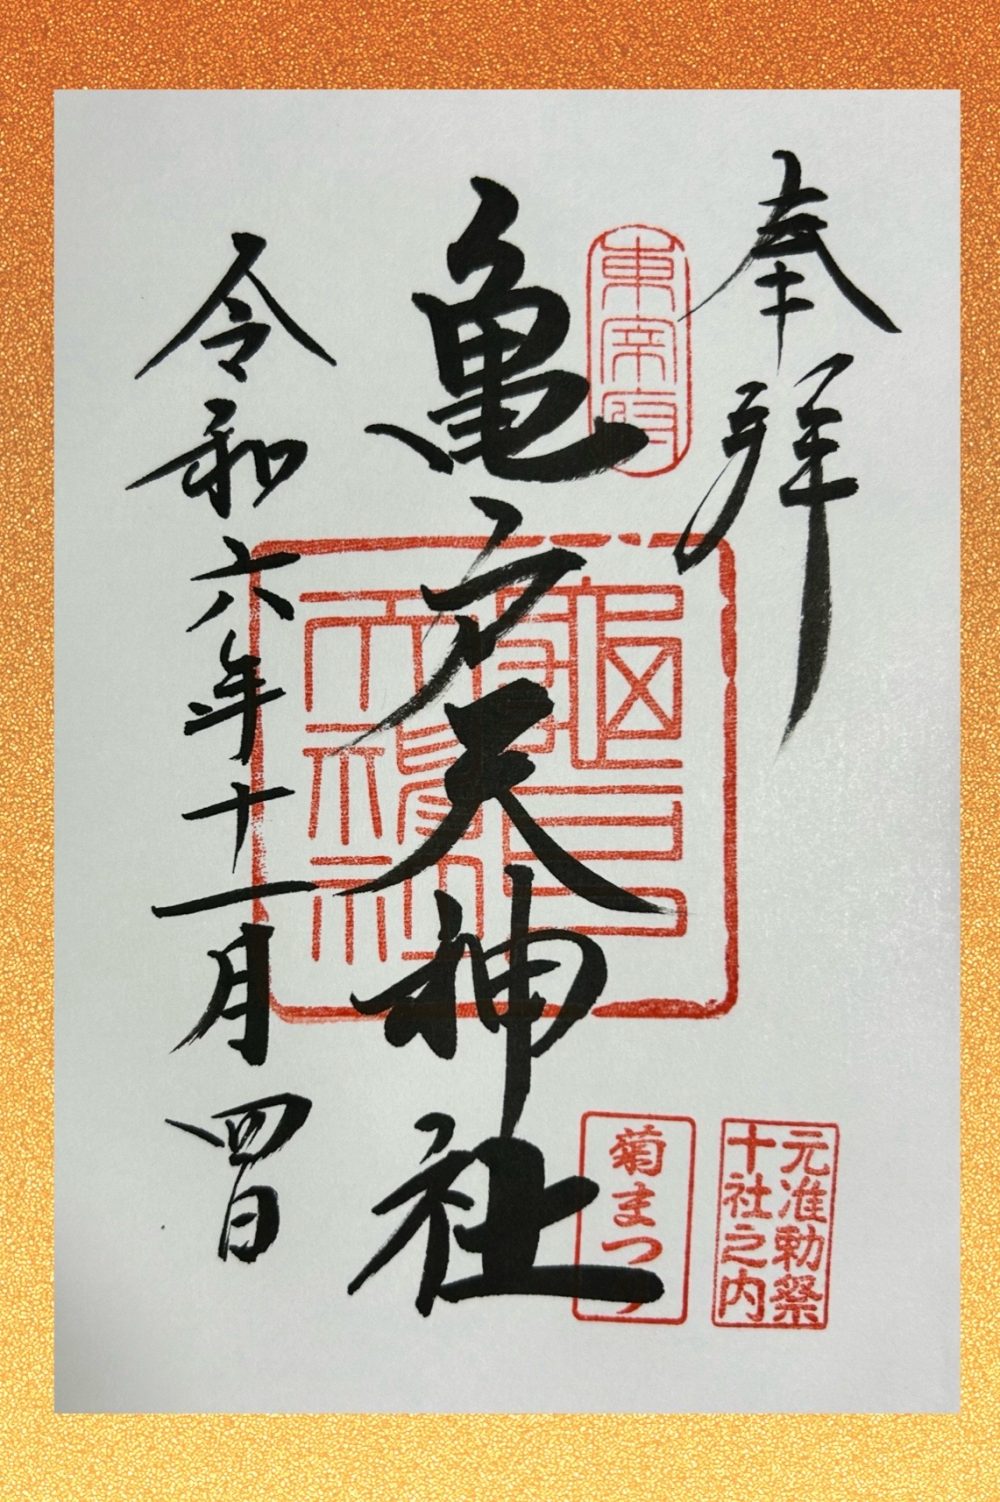 奉拝
東宰府
亀戸天神社
龜戸
天神社
令和六年十一月四日
元准勅祭
十社之内
菊まつり